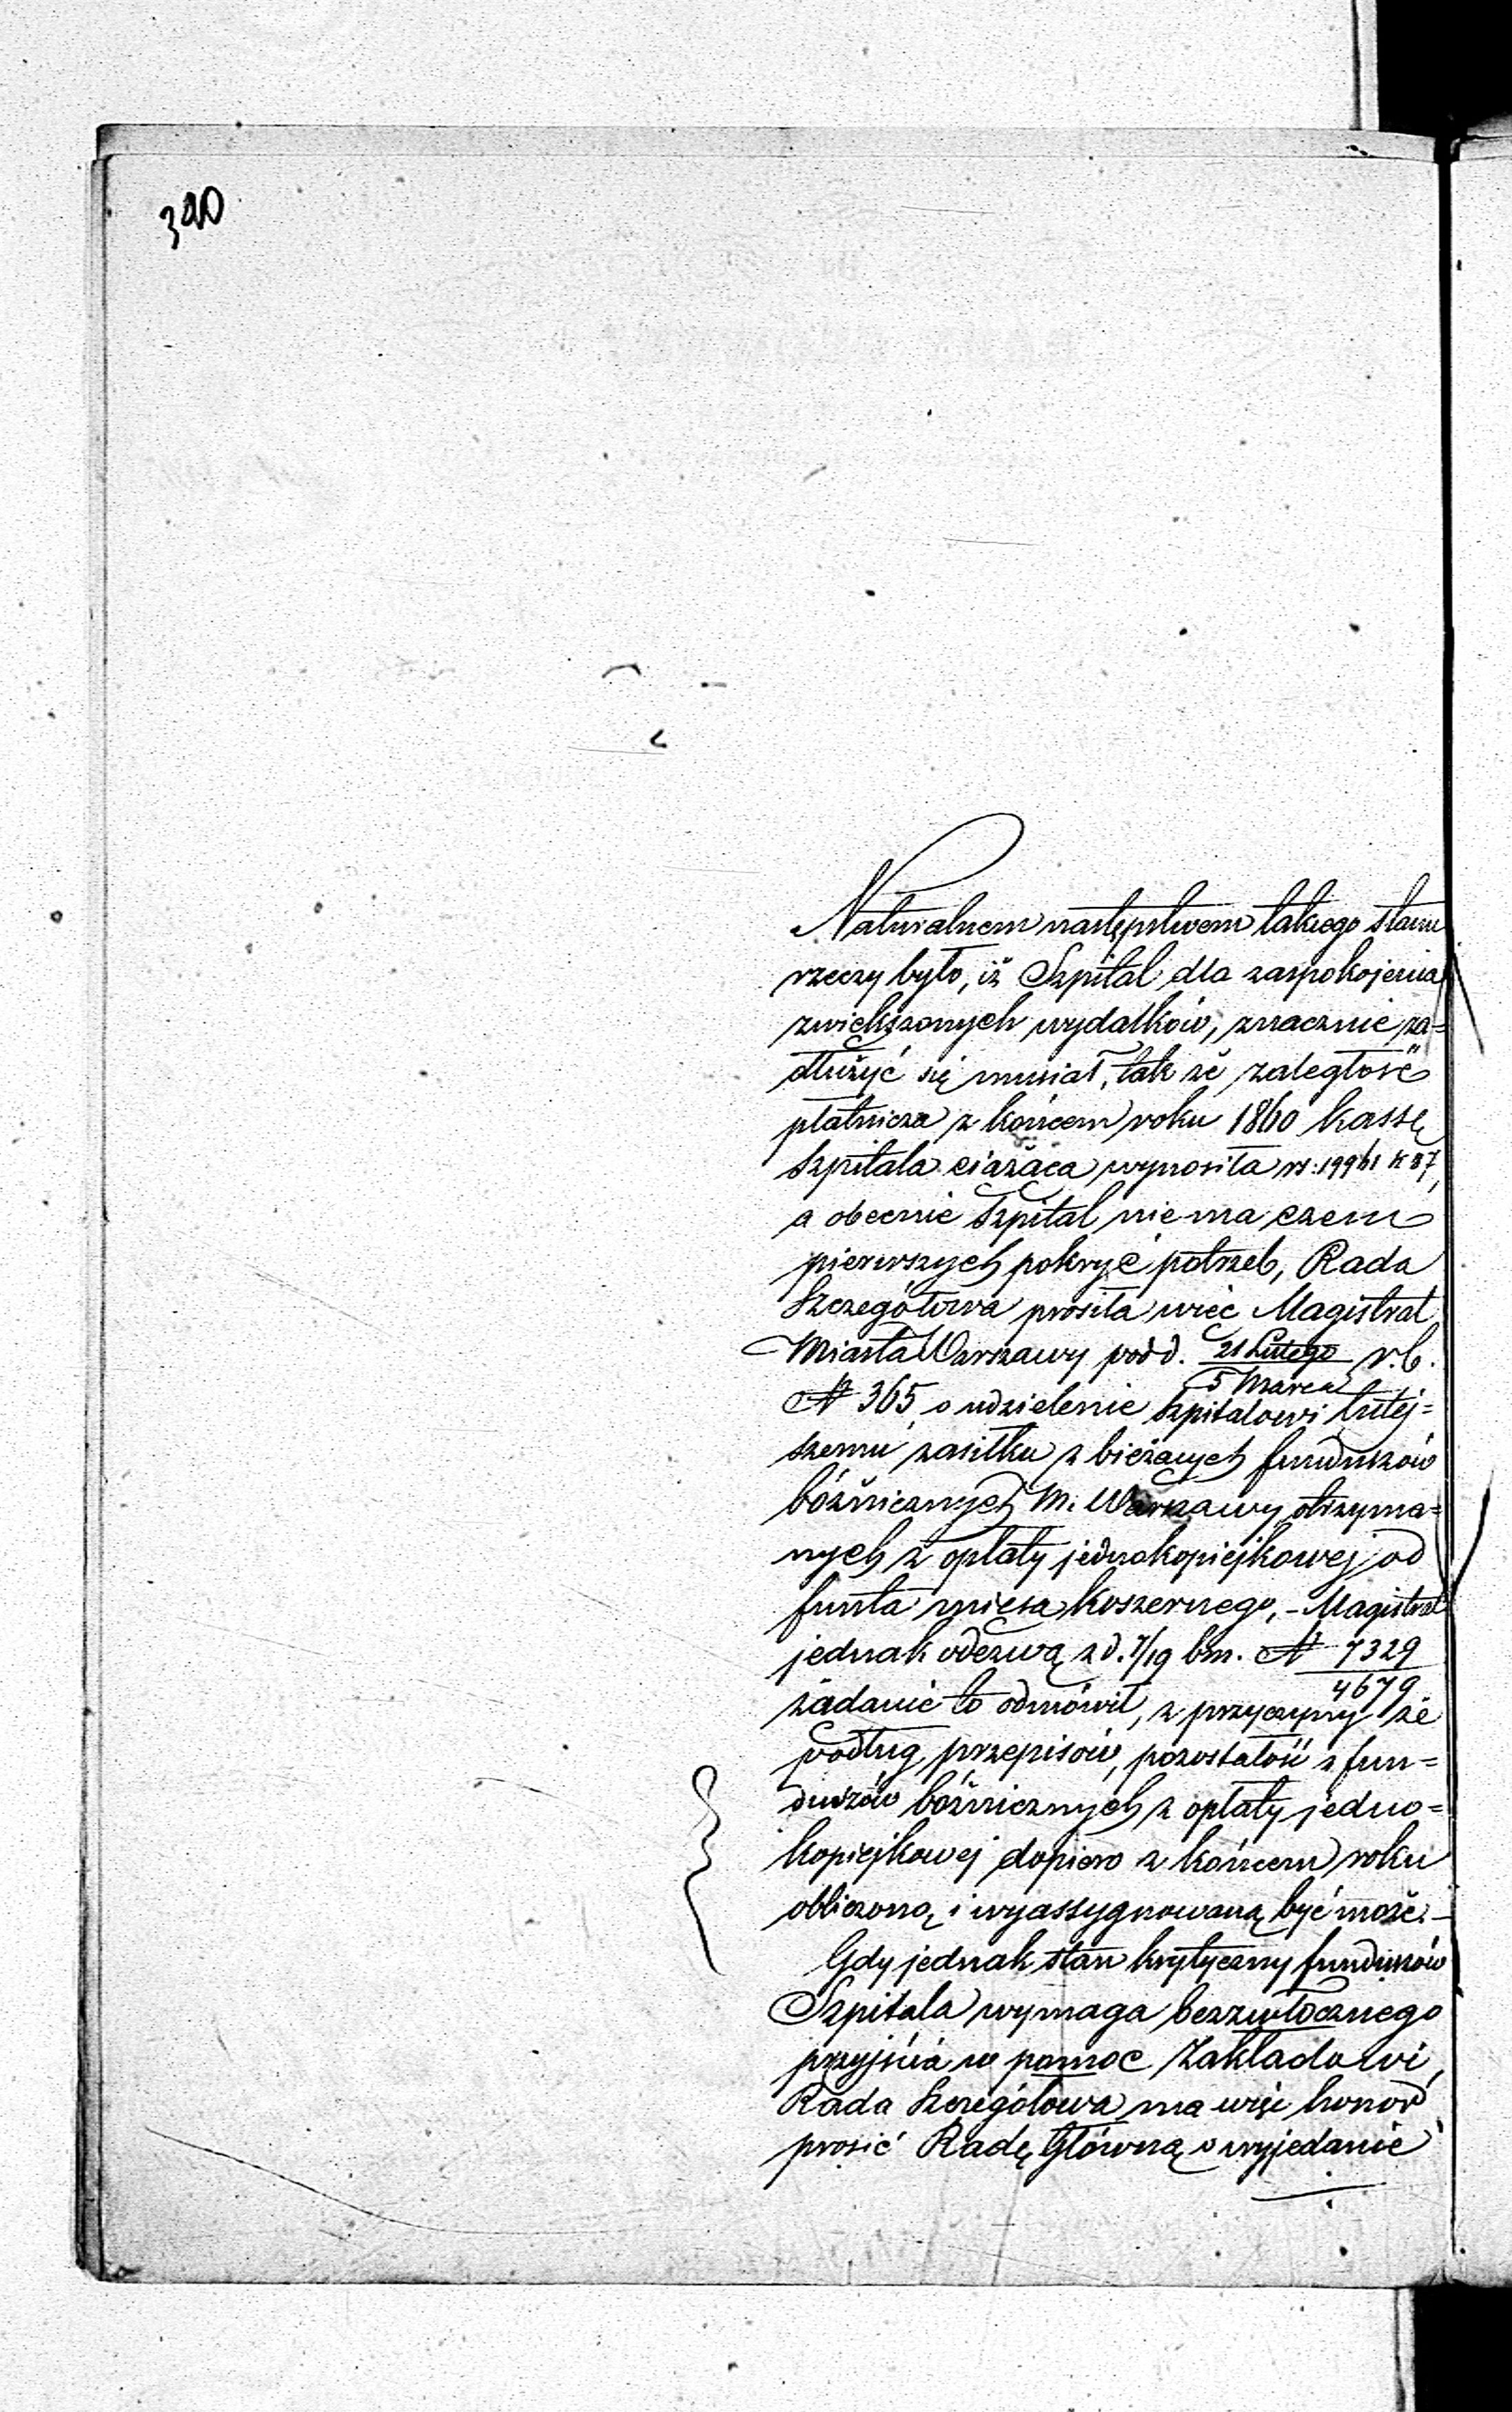 390
Naturalnem następstwem takiego stanu
rzeczy było, iż Szpital dla zaspokojenia
zwiększonych wydatków, znacznie za=
dłużyć się musiał, tak że zaległość
płatnicza z końcem roku 1860 kassę
Szpitala ciążąca wynosiła rs: 19961 k 87,
a obecnie Szpital nie ma czem
pierwszych pokryć potrzeb, Rada
Szczegółowa prosiła więc Magistrat
Miasta Warszawy pod d. 21 Lutego r. b.
5 Marca
N 365, o udzielenie Szpitalowi tutej=
szemu zasiłku z bieżących funduszów
bóżnicznych M. Warszawy otrzyma=
nych z opłaty jednokopiejkowej od
funta mięsa koszernego, - Magistrat
jednak odezwą z d. 7/19 bm. N 7329
4679
żądanie to odmówił, z przyczyny że
podług przepisów, pozostałość z fun=
duszów bóżnicznych z opłaty jedno=
kopiejkowej dopiero z końcem roku
obliczoną i wyassygnowaną być może. -
Gdy jednak stan krytyczny funduszów
Szpitala wymaga bezzwłocznego
przyjścia w pomoc Zakładowi,
Rada Szczegółowa ma więc honor
prosić Radę Główną o wyjedanie